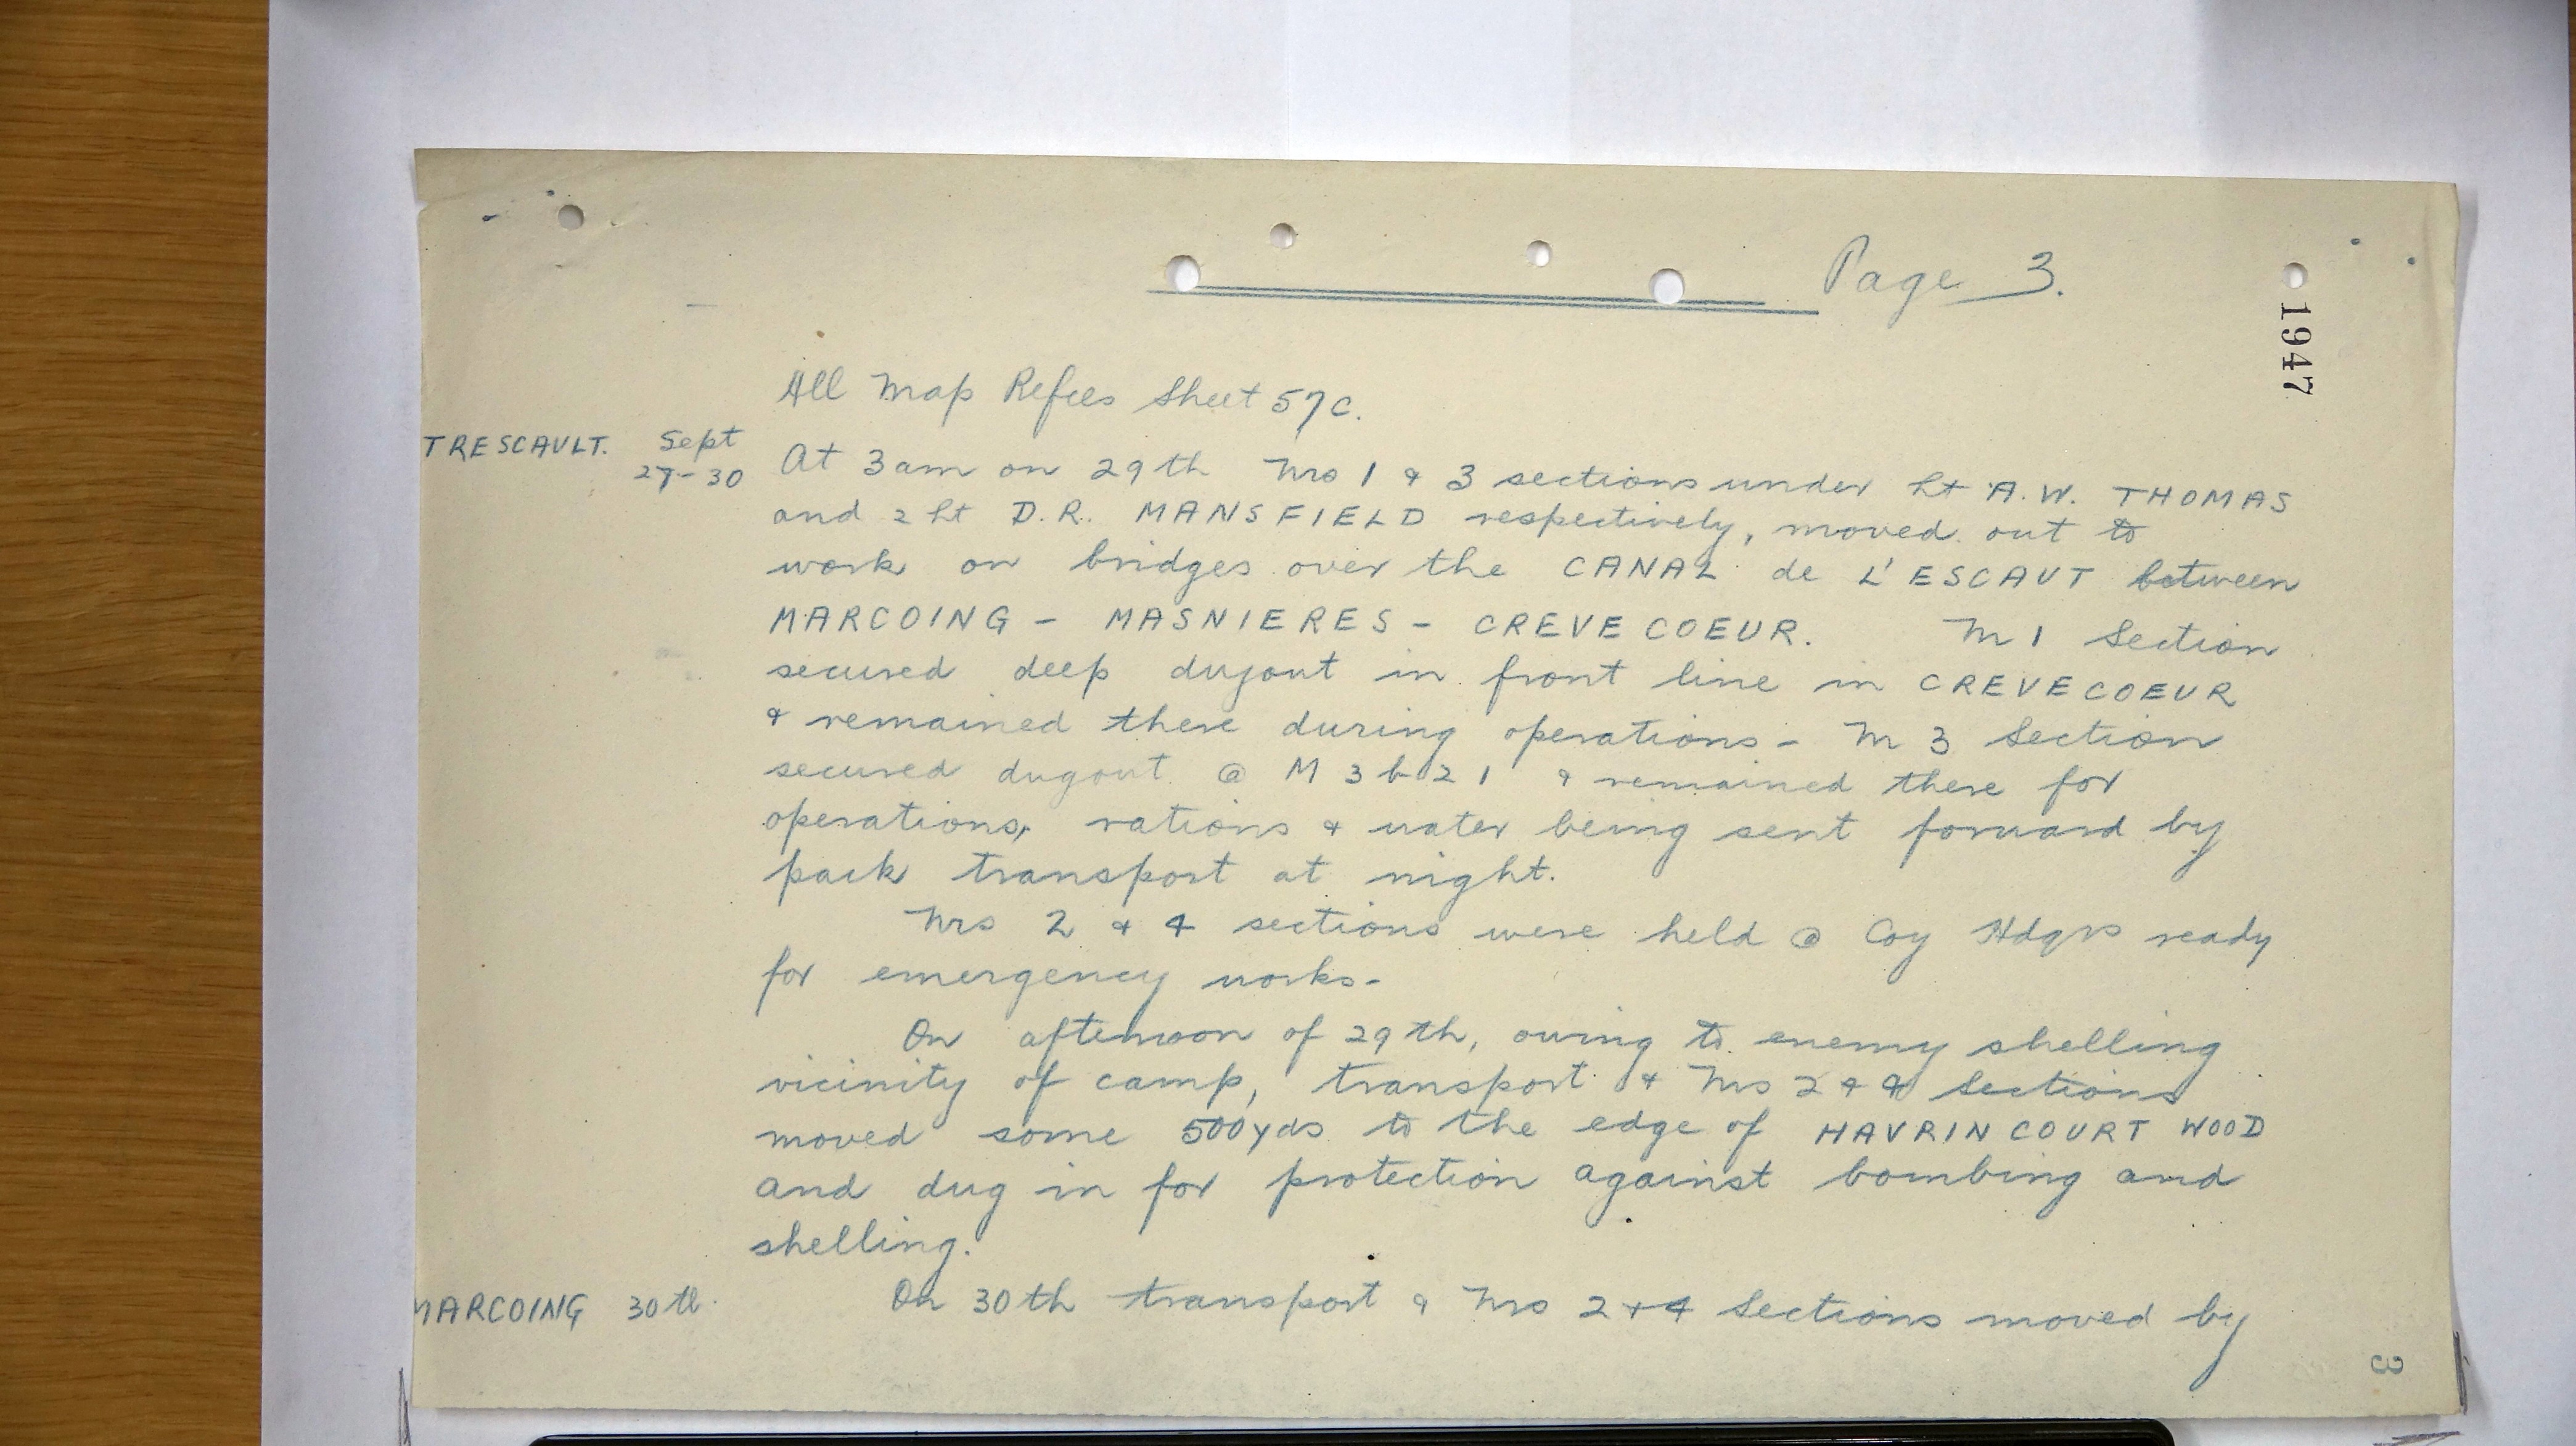 Page 3.
1947
All Map Refces Sheet 57c.
TRESCAULT. Sept
27-30 At 3am on 29th Nrs 1 & 3 sections under Lt A.W. THOMAS
and 2 Lt D.R. MANSFIELD respectively, moved out to
work on bridges over the CANAL de L'ESCAUT between
MARCOING - MASNIERES - CREVECOEUR. Nr 1 Section
secured deep dugout in front line in CREVECOEUR
& remained there during operations - Nr 3 Section
secured dugout @ M 3 b 2 1 & remained there for
operations, rations & water being sent forward by
pack transport at night.
Nrs 2 & 4 sections were held @ Coy Hdqrs ready
for emergency works-
On afternoon of 29th, owing to enemy shelling
vicinity of camp, transport & Nrs 2 & 4 Sections
moved some 500yds to the edge of HAVRINCOURT WOOD
and dug in for protection against bombing and
shelling.
MARCOING 30th On 30th transport & Nrs 2 & 4 Sections moved by
3